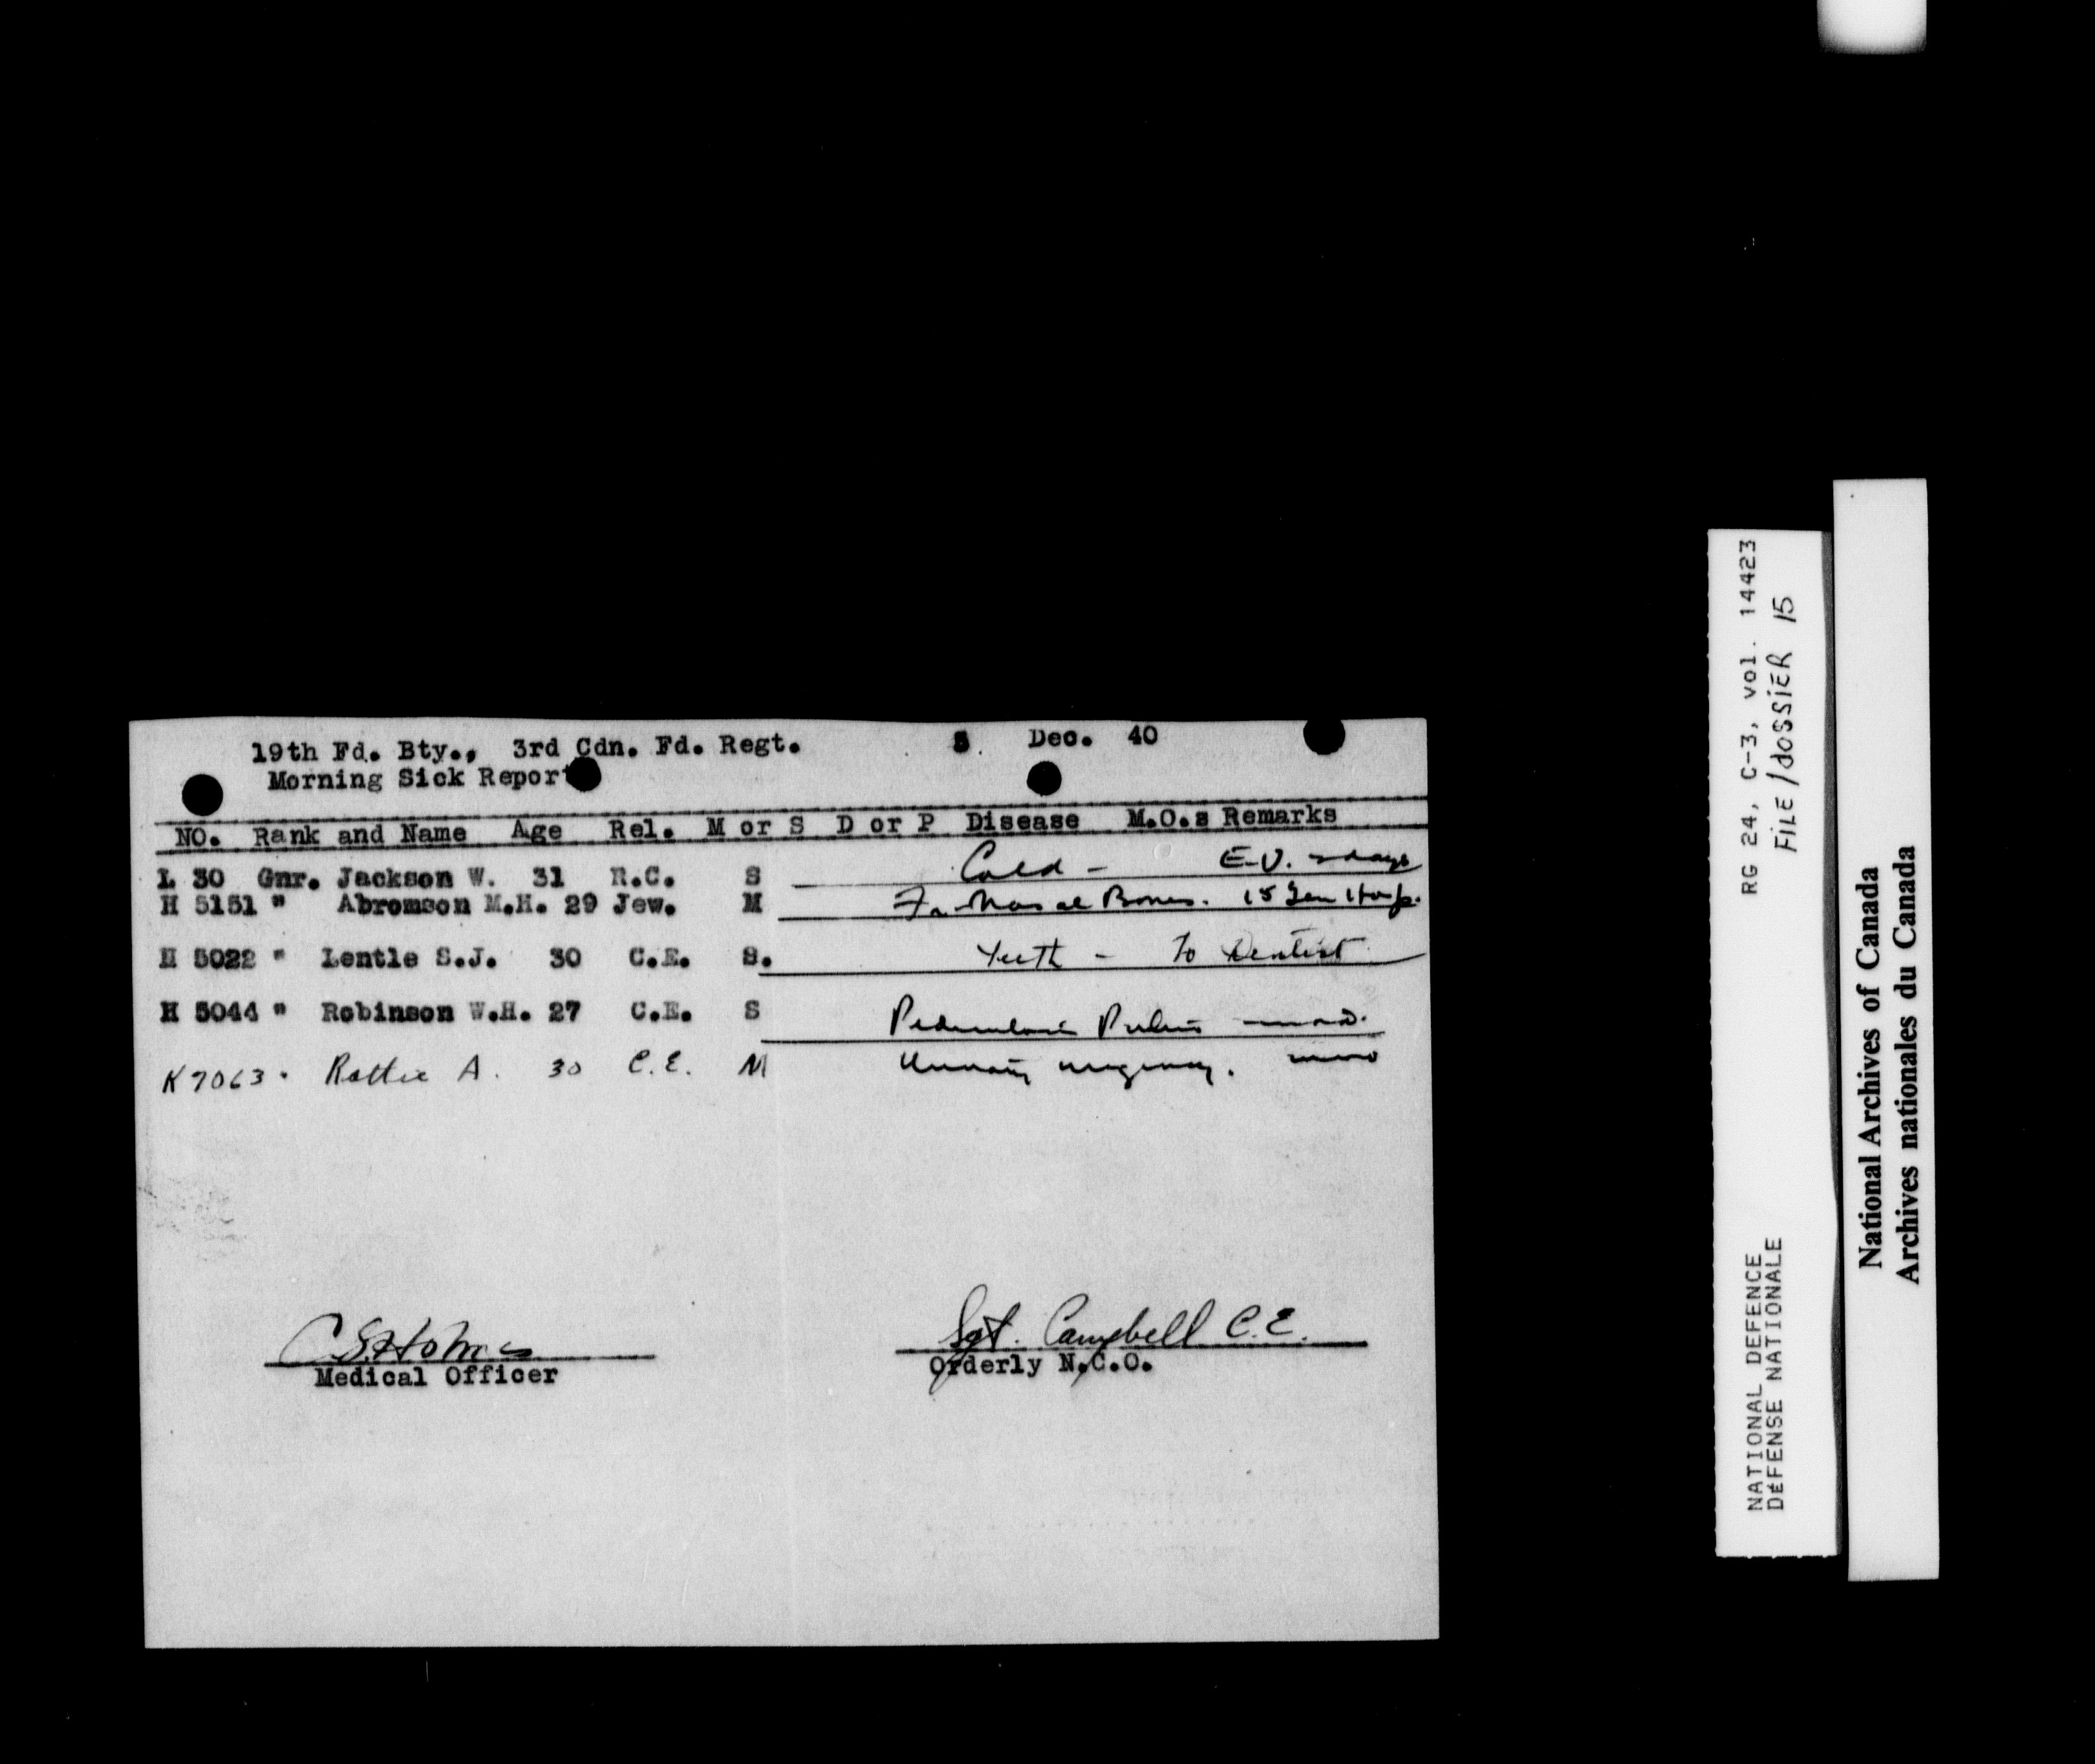 19th Fd. Bty., 3rd Cdn. Fd. Regt. Dec. 40
Morning Sick Report
NO. Rank and Name Age Rel. M or S D or P Disease M.O.s Remarks
L 30 Gnr. Jackson W. 31 R.C. S Cold - E.D. 2 days
H 5151 " Abromson M.H. 29 Jew. M Fr. Nasal Bones. 15 Gen Hosp.
H 5022 " Lentle S.J. 30 C.E. S. Teeth - To Dentist
H 5044 " Robinson W.H. 27 C.E. S Pediculosis Pubis
K7063 " Rattie A. 30 C.E. M Urinary urgency.
C.S. Holmes
Medical Officer
Sgt. Campbell C.E.
Orderly N.C.O.
RG 24, C-3, vol. 14423
FILE/dOSSiER 15
NATIONAL DEFENCE
DÉFENSE NATIONALE
National Archives of Canada
Archives nationales du Canada